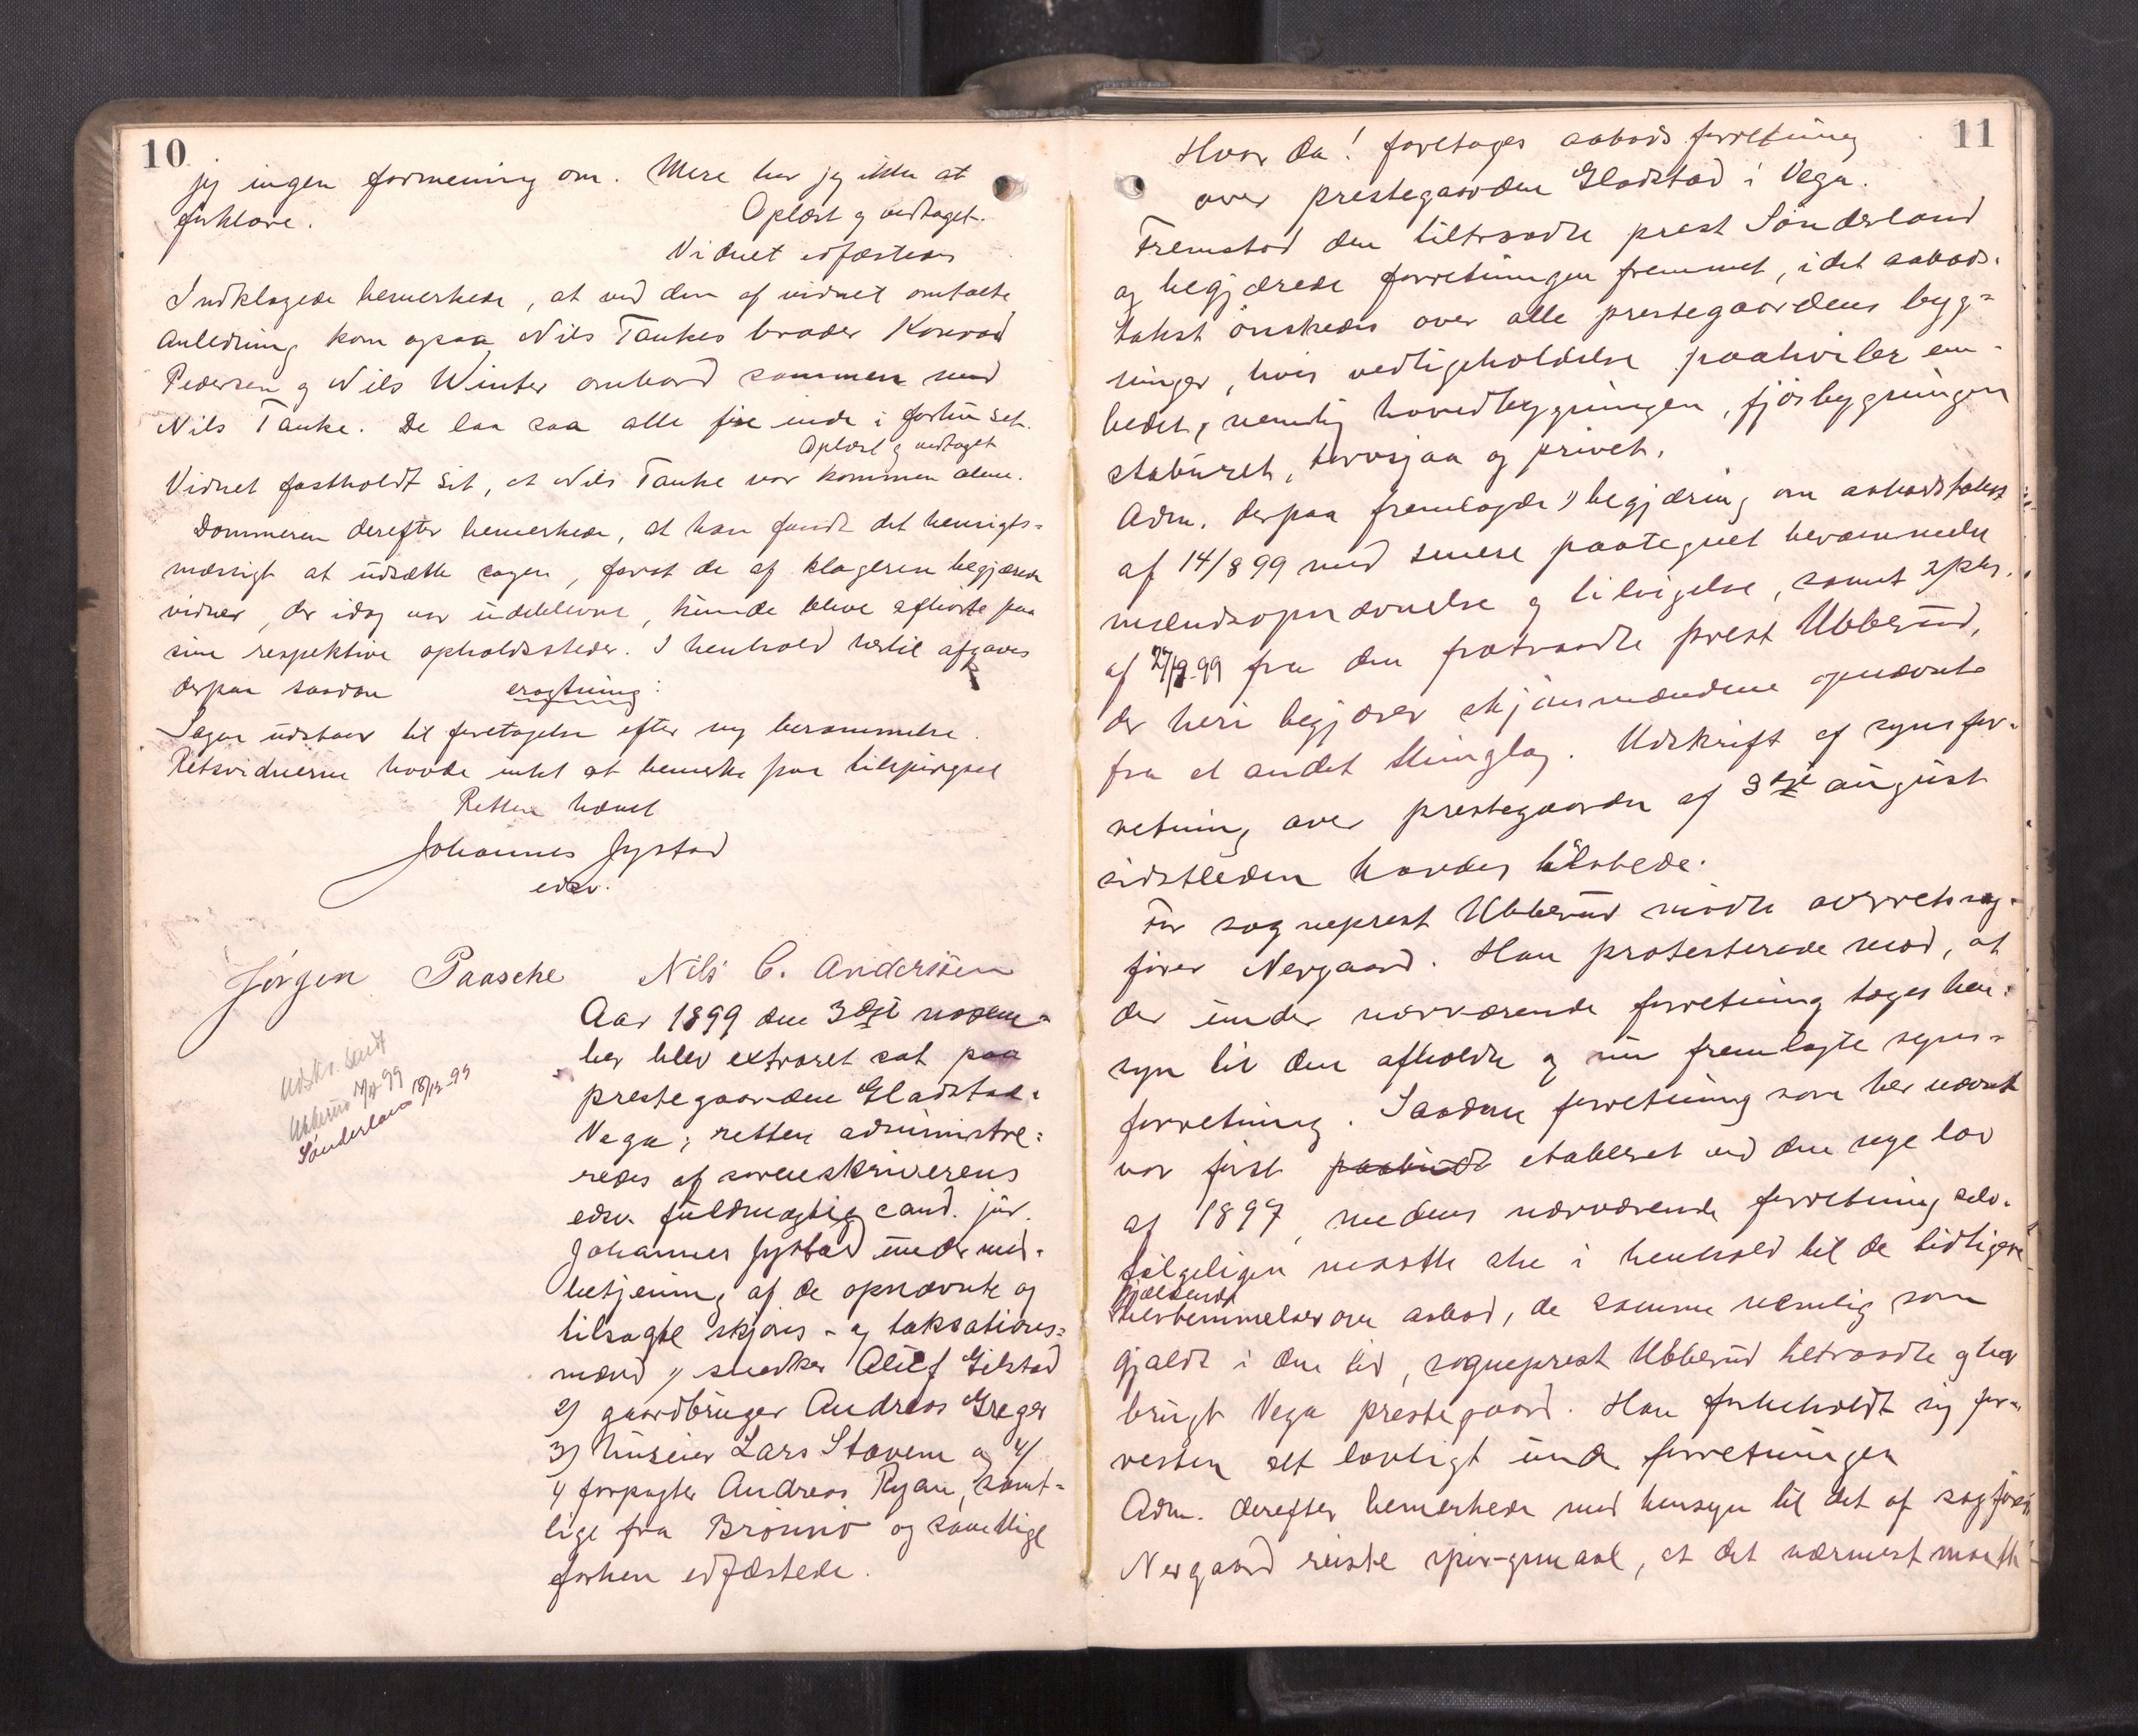 10
jeg ingen formening om. Mere har jeg ikke at
forklare. Oplæst og vedtaget.
Vidnet edfæstedes
Indklagede bemerkede, at ved den af vidnet omtalte
anledning kom ogsaa Nils Tankes broder Konrad
Pedersen og Nils Winter ombord sammen med
Nils Tanke. De laa saa alle fire inde i forhuset.
Oplæst og vedtaget
Vidnet fastholdt sit, at Nils Tanke var kommen alene.
Dommeren derefter bemerkede, at han fandt det hensigts=
mæssigt at udsætte sagen, forat de af klageren begjærede
vidner, der idag var udeblevne, kunde blive afhørte paa
sine respektive opholdssteder. I henhold hertil afgaves
derpaa saadan eragtning:
Sagen udstaar til foretagelse efter ny berammelse.
Retsvidnerne havde intet at bemerke paa tilspørgsel
Retten hævet
Johannes Jystad
edsv.
Jørgen Paasche Nils C. Andersen
Udskr. sendt
Ubberud 14/11 99
Sønderland 18/12-99
Aar 1899 den 3die novem=
ber blev extraret sat paa
prestegaarden Gladstad i
Vega; retten administre=
redes af sorenskriverens
edsv. fuldmægtig cand. jur.
Johannes Jystad under med=
betjening af de opnævnte og
tilsagte skjøns- og taksations=
mænd 1) snedker Oluf Gilstad
2) gaardbruger Andreas Greger
3) huseier Lars Stavem og 4/
4 forpagter Andreas Ryan, samt=
lige fra Brønnø og samtlige
forhen edfæstede.
11
Hvor da! foretages aabods forretning
over prestegaarden Gladstad i Vega.
Fremstod den tiltraadte prest Sønderland
og begjærede forretningen fremmet, idet aabods=
takst ønskedes over alle prestegaardens byg=
ninger, hvis vedligeholdelse paahviler em=
bedet, nemlig hovedbygningen, fjøsbygningen
staburet, torvsjaa og privet.
Adm. derpaa fremlagde 1) begjæring om aabodstakst
af 14/8 99 med senere paategnet berammelse
mændsopnævnelse og tilsigelse, samt 2 pkr.
af 27/9-99 fra den fratraadte prest Ubberud,
der heri begjærer skjønsmændene opnævnte
fra et andet thinglag. Udskrift af synsfor=
retning over prestegaarden af 3die august
sidstleden havdes tilstede.
For sogneprest Ubberud mødte overretssag=
fører Nergaard. Han protesterede mod, at
der under nærværende forretning toges hen=
syn til den afholdte og nu fremlagte syns=
forretning. Saadan forretning som her nævnt
var først paabudt etableret ved den nye lov
af 1897, medens nærværende forretning selv=
følgeligen maatte ske i henhold til de tidligere
gjældende
bestemmelser om aabod, de samme nemlig som
gjaldt i den tid, sogneprest Ubberud tiltraadte og har
brugt Vega prestegaard. Han forbeholdt sig for=
resten alt lovligt under forretningen
Adm. derefter bemerkede med hensyn til det af sagfører
Nergaard reiste spørgsmaal, at det nærmest maatte